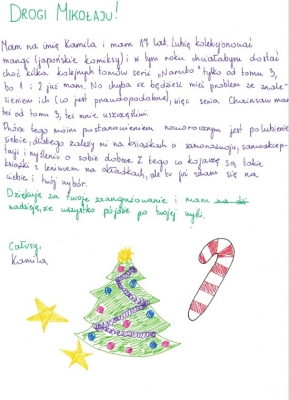 DROGI MIKOŁAJU!
Mam na imię Kamila i mam 17 lat. Lubię kolekcjonować
mangi (japońskie komiksy) i w tym roku chciałabym dostać
choć kilka kolejnych tomów serii „Naruto" tylko od tomu 3,
bo 1 i 2 już mam. No chyba że będziesz mieć problem ze znale-
zieniem ich (co jest prawdopodobne), więc seria Chainsaw man
też od tomu 3, też mnie uszczęśliwi.
Poza tym moim postanowieniem noworocznym jest polubienie
siebie, dlatego zależy mi na książkach o samorozwoju, samoakcep-
tacji i myśleniu o sobie dobrze. Z tego co kojarzę są takie
książki z leniwcem na okładkach, ale tu już zdam się na
ciebie i twój wybór.
Dziękuję za twoje zaangażowanie i mam
nadzieję, że wszystko pójdzie po twojej myśli.
Całusy,
Kamila